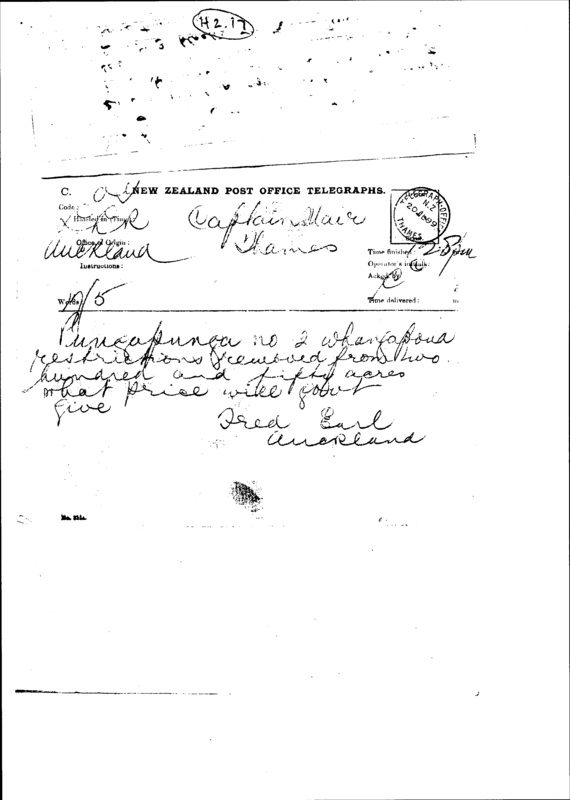 H2.17
C. NEW ZEALAND POST OFFICE TELEGRAPHS.
Code:
Captain Mair
Thames
Office of Origin:
Auckland
Instructions:
TELEGRAPH OFFICE
N.Z.
THAMES
Time finished:
Operator's initials:
Time delivered:
Words
Pungapunga no 2 whangapoua
restrictions removed from two
hundred and fifty acres
what price will govt
give
Fred Earl
Auckland